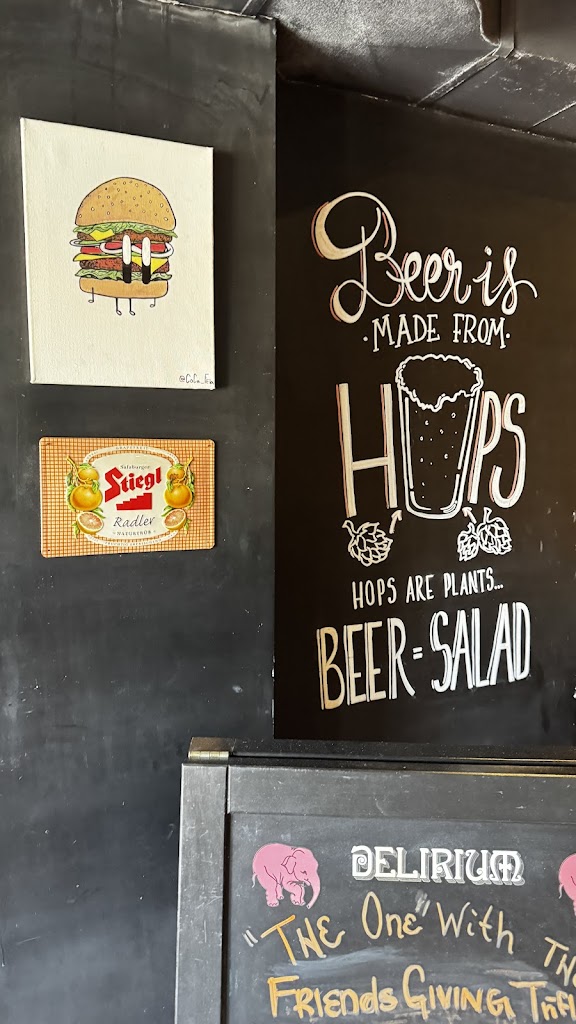 Beer is
·MADE FROM·
HOPS
HOPS ARE PLANTS...
BEER=SALAD
Salzburger
Stiegl
Radler
NATURTRÜB
DELIRIUM
"THE One" With
Friends Giving